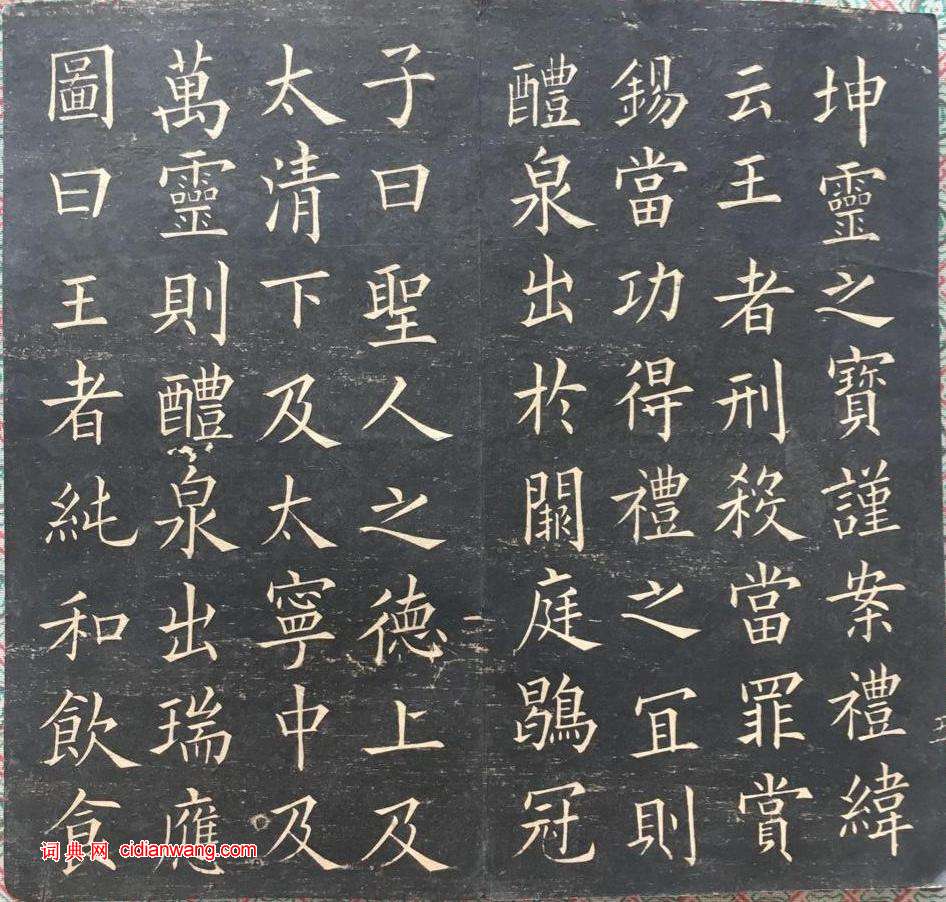 坤靈之寶謹案禮緯
云王者刑殺當罪賞
錫當功得禮之宜則
醴泉出於闕庭鶡冠
子曰聖人之德上及
太清下及太寧中及
萬靈則醴泉出瑞應
圖曰王者純和飲食
词典网 cidianwang.com